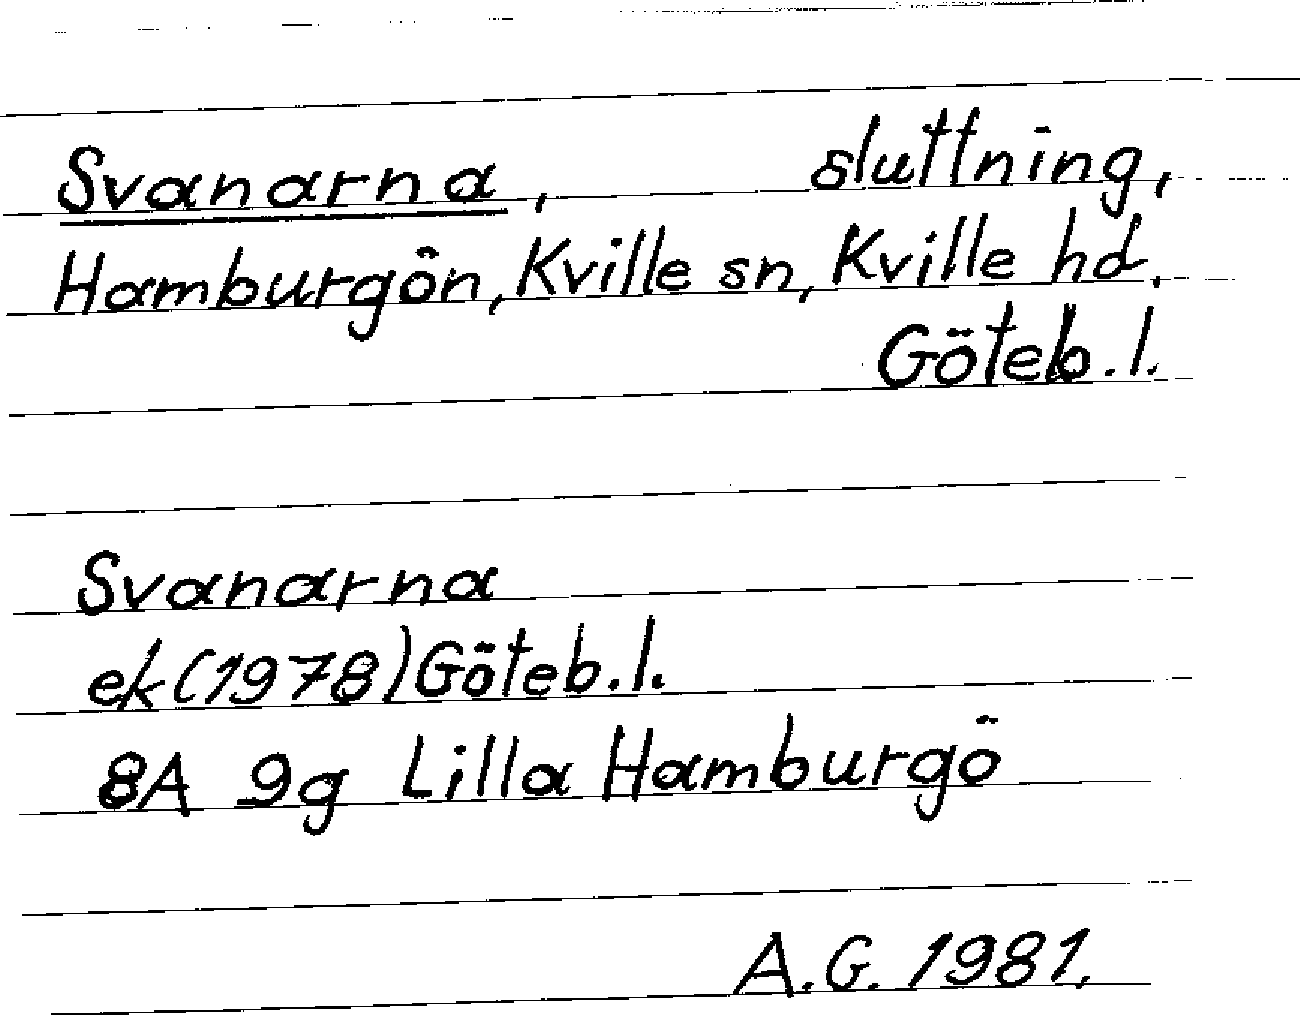 Svanarna, sluttning,
Hamburgön, Kville sn, Kville hd,
Göteb. l.
Svanarna
ek (1978) Göteb. l.
8A 9g Lilla Hamburgö
A.G. 1981.